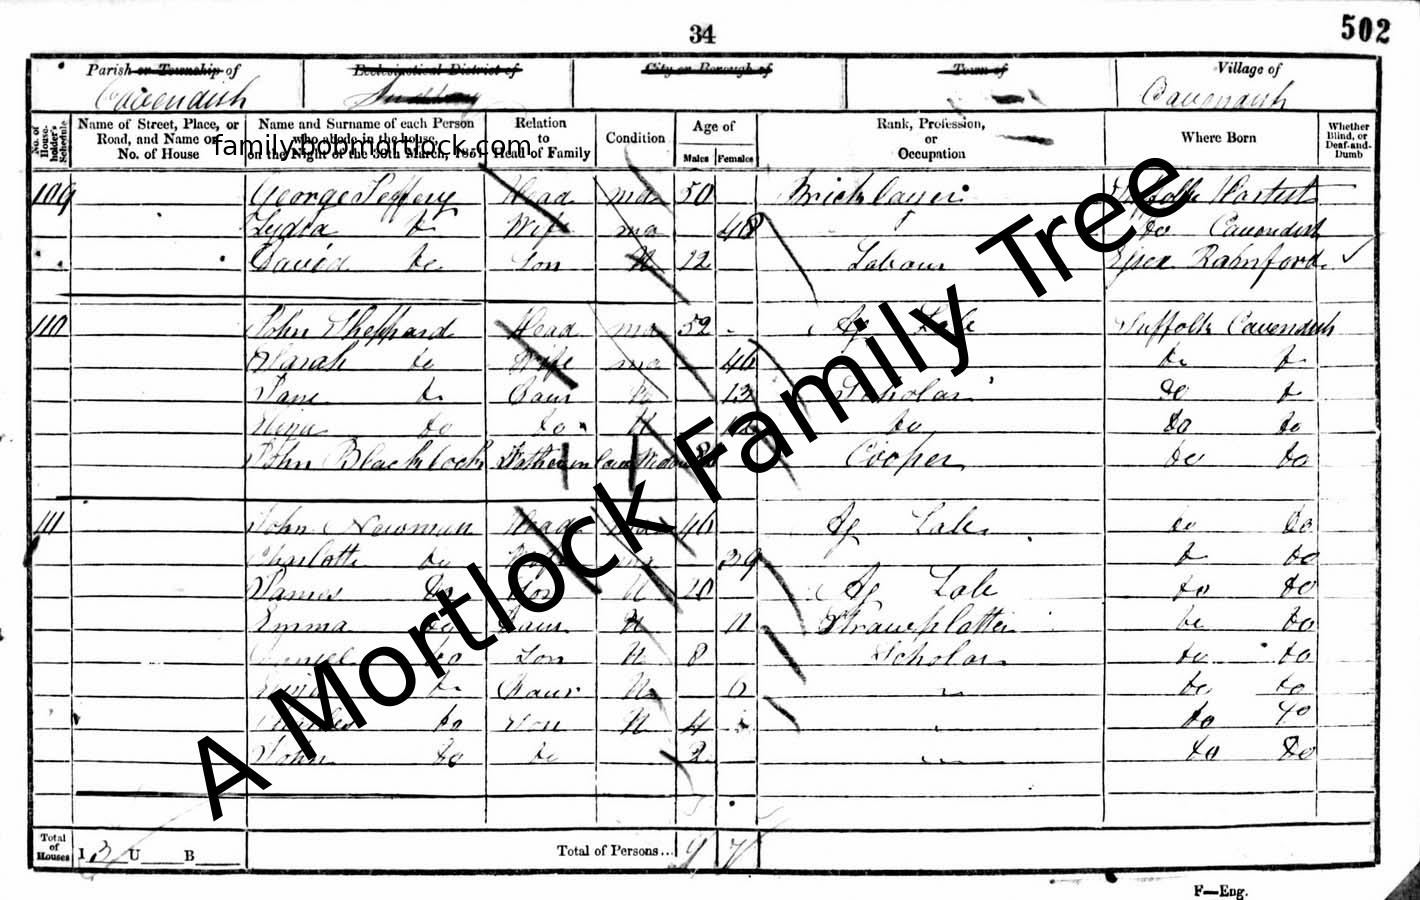 34
502
Parish or Township of
Ecclesiastical District of
City or Borough of
Town of
Village of
Cavendish
Cavendish
No. of House-holder's Schedule
Name of Street, Place, or Road, and Name or No. of House
Name and Surname of each Person who abode in the house, on the Night of the 30th March, 1851
Relation to Head of Family
Condition
Age of
Males
Females
Rank, Profession, or Occupation
Where Born
Whether Blind, or Deaf-and-Dumb
family.bobmortlock.com
109 George Jeffery Head ma 50 Bricklayer Suffolk Hartest
Lydia do Wife ma 48 do Cavendish
David do Son U 12 Labour Essex
110 John Sheppard Head ma 52 Ag Lab Suffolk Cavendish
Sarah do Wife ma 46 do do
Jane do Daur U 13 Scholar do do
do do U do do do
John Blacklock Father in law Cooper do do
111 John Newman Head ma 46 Ag Lab do do
Charlotte do Wife 39 do do
James do Son U Ag Lab do do
Emma do Daur U 11 Straw platter do do
Daniel do Son U 8 Scholar do do
do Daur U 6 do do
do Son U 4 do do
John do do 2 do do
A Mortlock Family Tree
Total of Houses
I 3 U B
Total of Persons... 9 7
F—Eng.